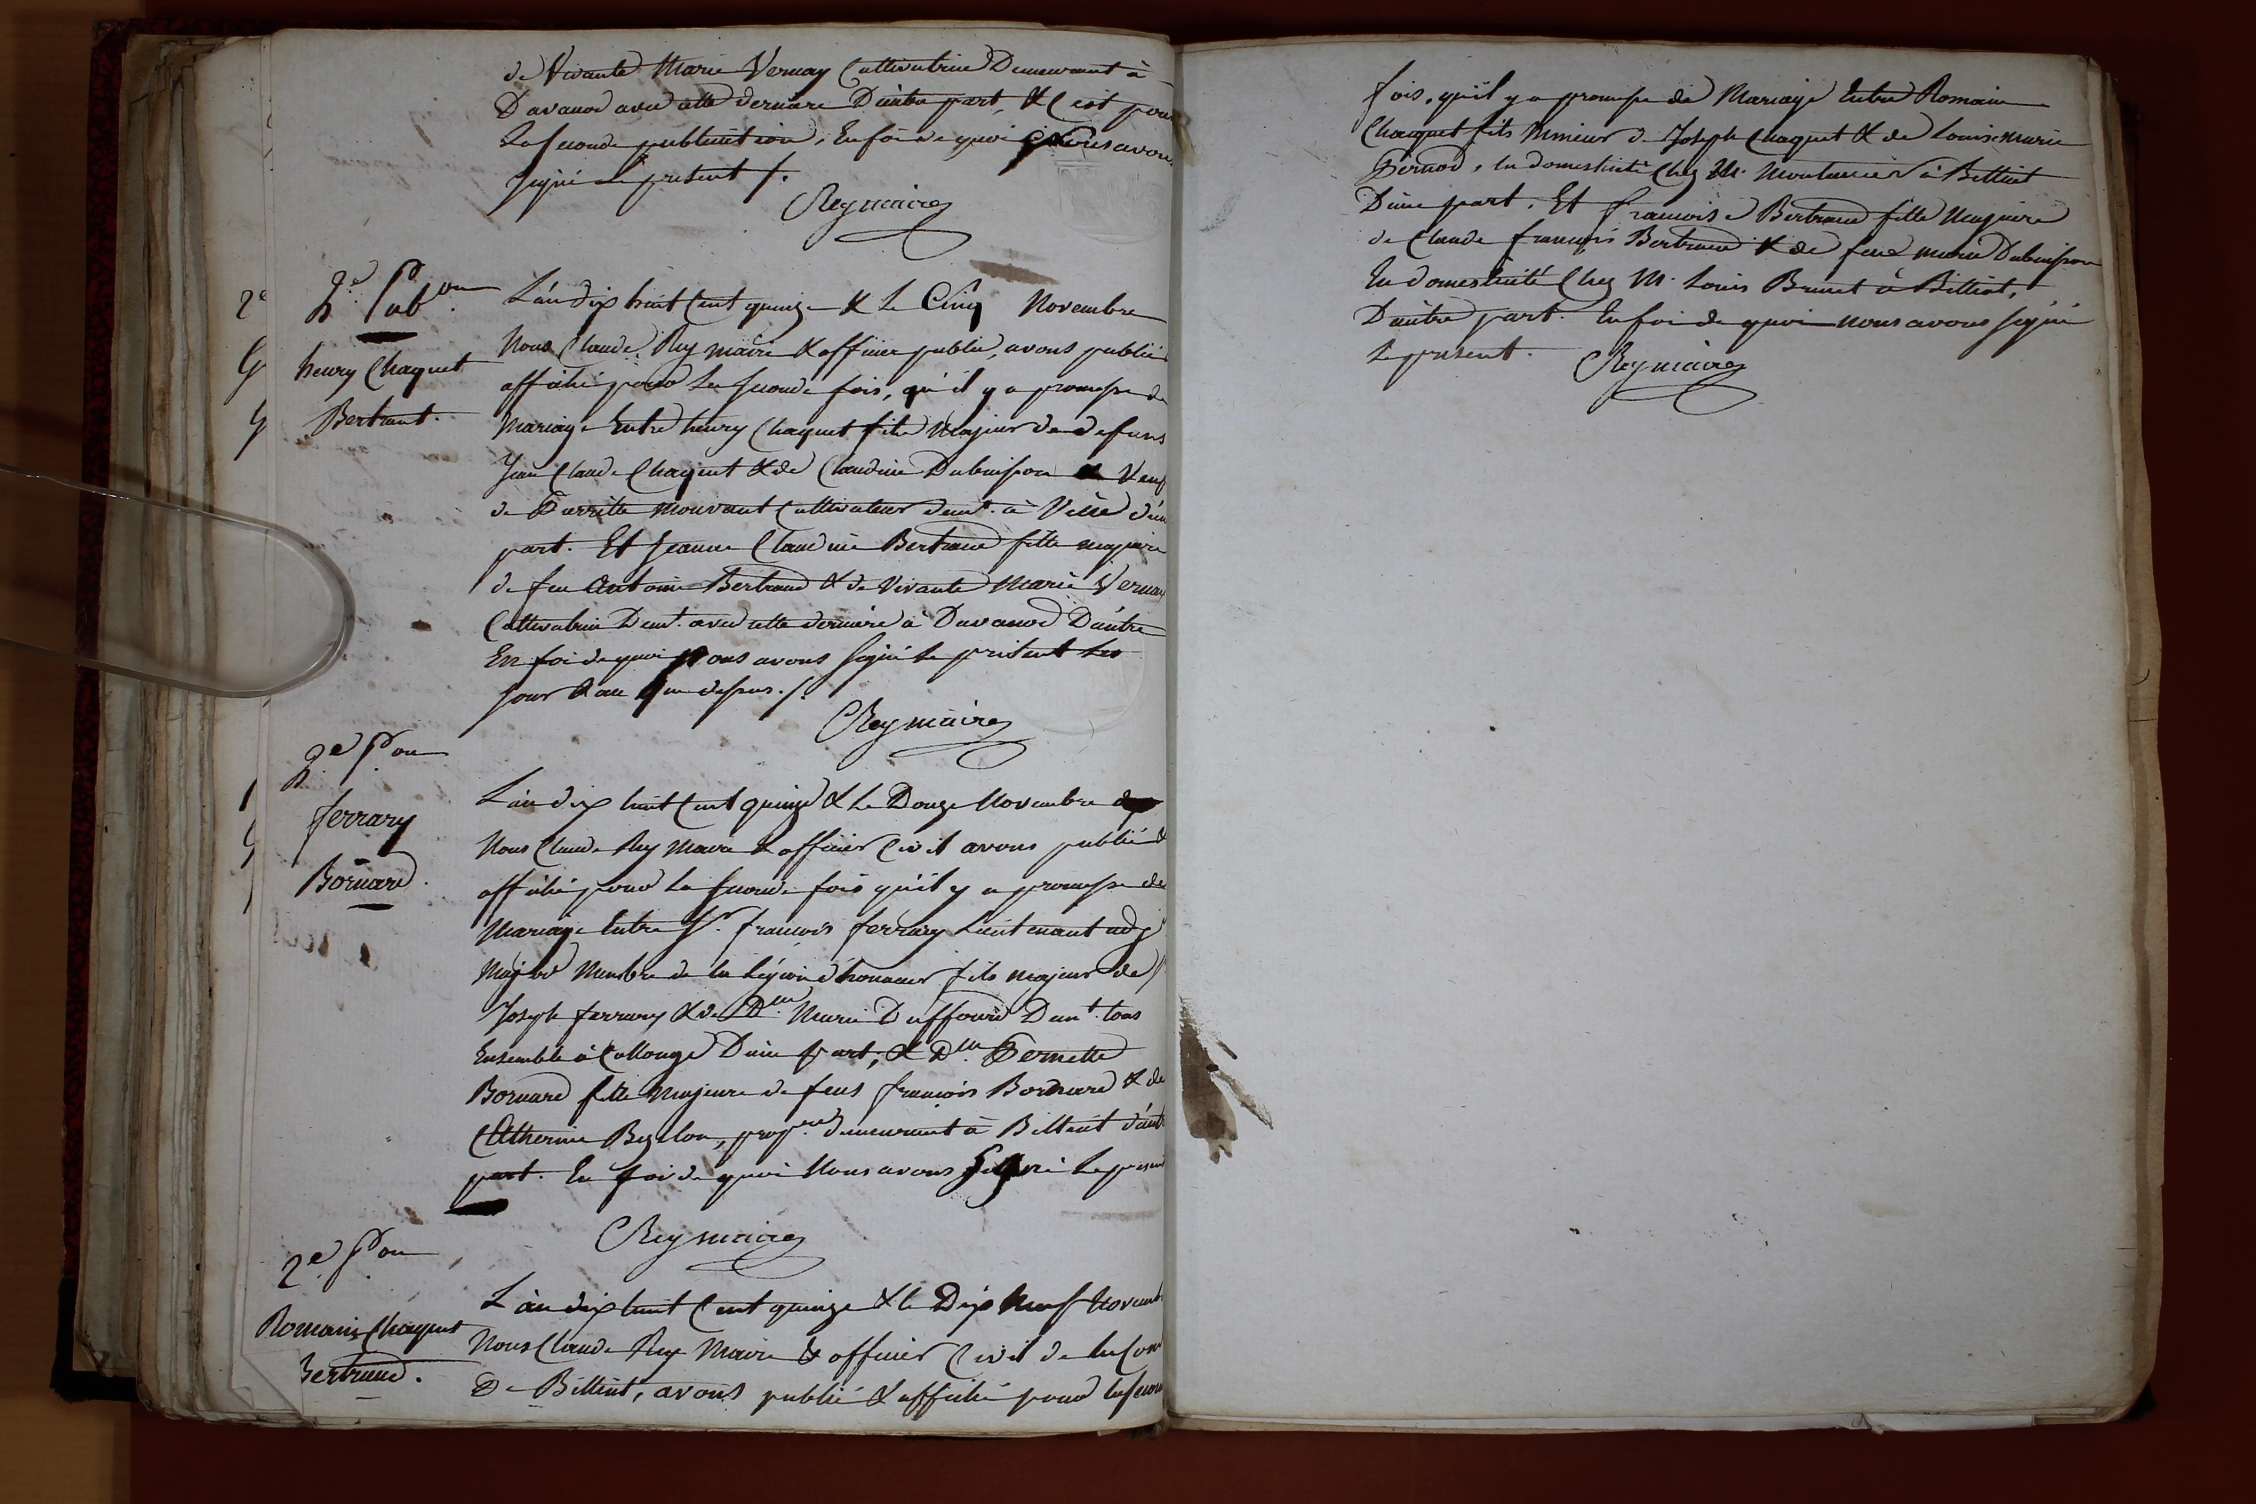 de Vivante Marie Vernay Cultivatrice Demeurant à
Davanod avec cette dernière D'autre part, & C'est pour
La seconde publication, En foi de quoi Nous avons
signé le présent /.
Rey maire
2e. Pub.on
henry Chaquet
Bertrant.
L'an dix huit Cent quinze & Le Cinq Novembre
Nous Claude Rey maire & officier public, avons publié
affiché pour La seconde fois, qu'il y a promesse de
Mariage Entre henry Chaquet fils Majeur de defunt
Jean Claude Chaquet & de Claudine Dubuisson Veuf
de Pierrette Mouvant Cultivateur demt. à
part. Et Jeanne Claudine Bertrand fille majeure
de feu Antoine Bertrand & de Vivante Marie Vernay
Cultivatrice Demt. avec cette dernière à Davanod D'autre
En foi de quoi Nous avons signé le présent Les
jour & an que dessus. /.
Rey maire
2e P.on
ferrary
Bornard.
L'an dix huit Cent quinze & Le Douze Novembre
Nous Claude Rey Maire & officier Civil avons publié &
affiché pour La seconde fois qu'il y a promesse de
Mariage Entre Sr. françois ferrary Lieutenant adjt
Major Membre de la Légion d'honneur fils majeur de
Joseph ferrary & de De. Marie Duffour Demt. tous
Ensemble à Collonge D'une part; & Dlle Pernette
Bornard fille Majeure de feus françois Bornard & de
Catherine, prop.re demeurant à Billiat d'autre
part. En foi de quoi Nous avons Signé Le présent
Rey maire
2e P.on
Romain Chaquet
Bertrand.
L'an dix huit Cent quinze & le Dix Neuf Novembre
Nous Claude Rey Maire & officier Civil de la Com
De Billiat, avons publié & affiché pour la seconde
fois, qu'il y a promesse de Mariage Entre Romain
Chaquet fils Mineur de Joseph Chaquet & de Louise Marie
Pernod, En domesticité Chez Mr. Montanier à Billiat
D'une part, Et françoise Bertrand fille Majeure
de Claude françois Bertrand & de feue marie Dubuisson
En domesticité Chez M. Louis Brunet à Billiat,
D'autre part. En foi de quoi nous avons signé
Le présent.
Rey maire